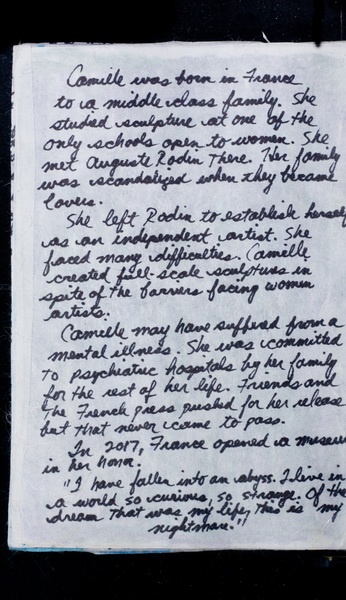 Camille was born in France
to a middle class family. She
studied sculpture at one of the
only schools open to women. She
met Auguste Rodin there. Her family
was scandalized when they became
lovers.
She left Rodin to establish herself
as an independent artist. She
faced many difficulties. Camille
created full-scale sculptures in
spite of the barriers facing women
artists.
Camille may have suffered from a
mental illness. She was committed
to psychiatric hospitals by her family
for the rest of her life. Friends and
the French press pushed for her release
but that never came to pass.
In 2017, France opened a museum
in her honor.
"I have fallen into an abyss. I live in
a world so curious, so strange. Of the
dream that was my life, this is my
nightmare."